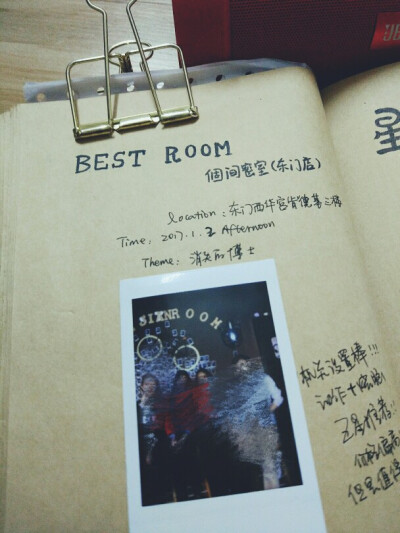 BEST ROOM
個间密室(东门店)
location: 东门西华宫肯德基三楼
Time: 2017.1.2 Afternoon
Theme: 消失的博士
SIXNROOM
机关设置棒!!!
五星推荐!!
JB